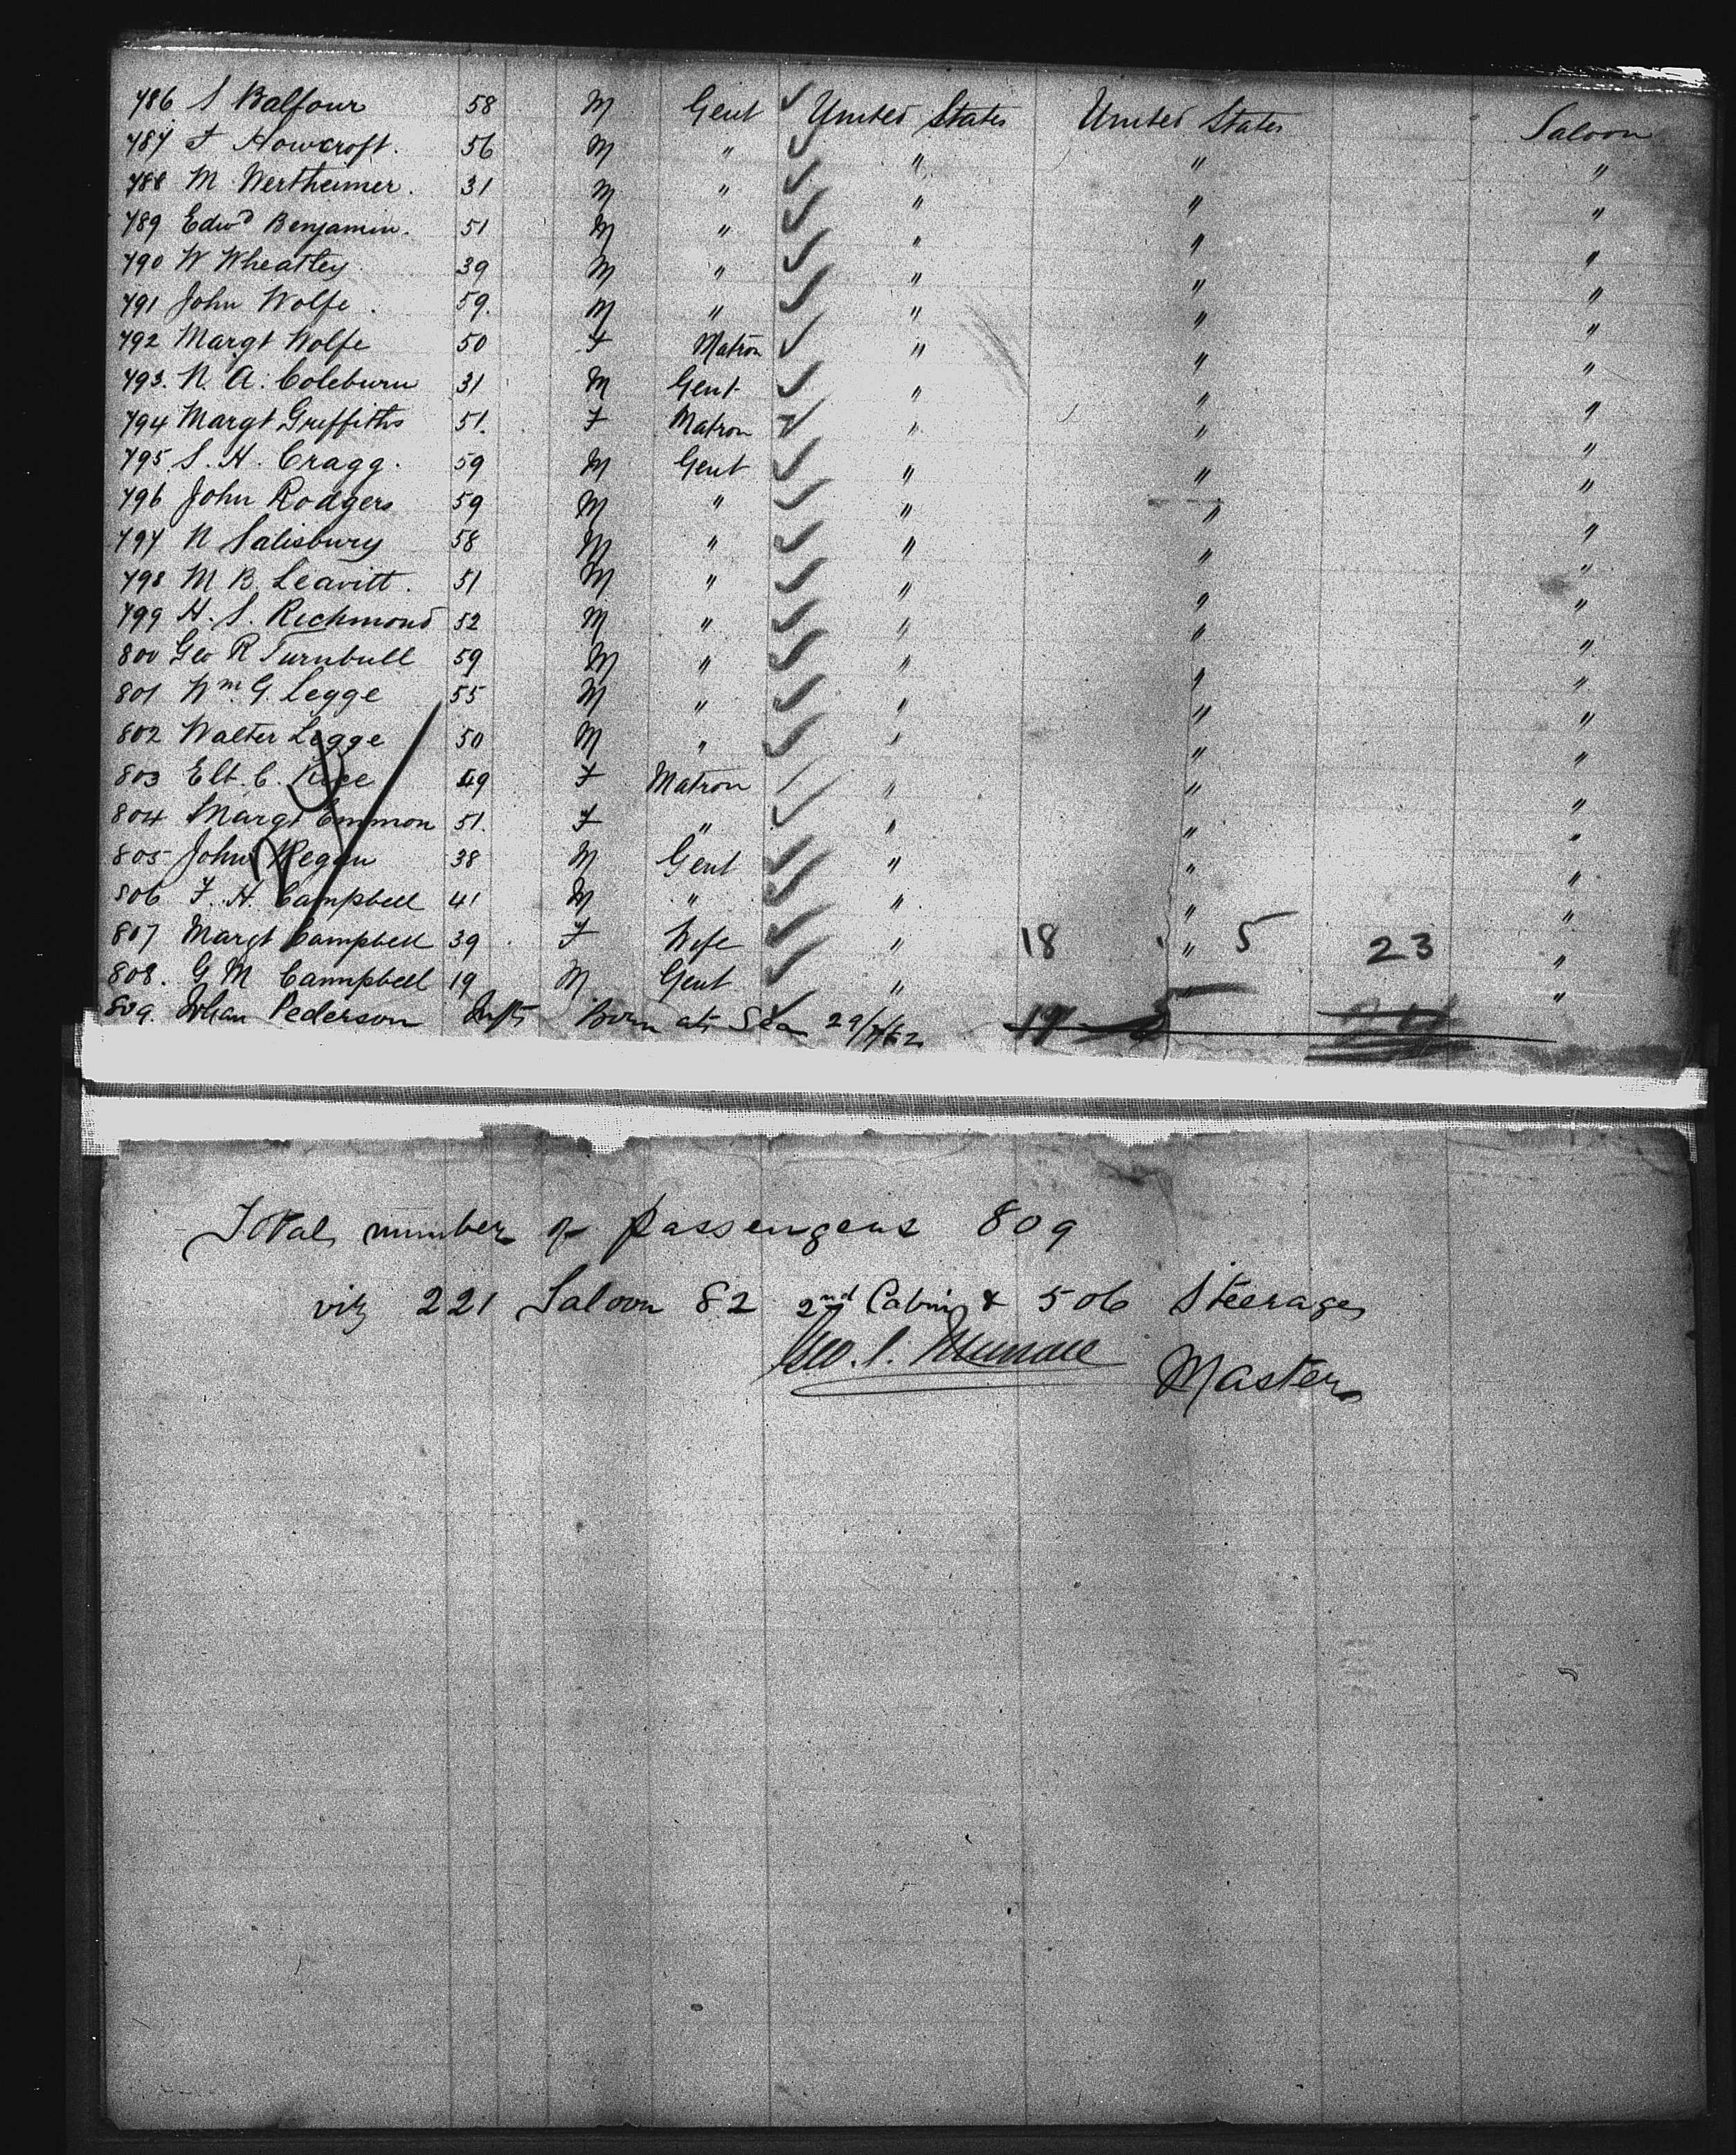 786 S Balfour 58 M Gent ✓ United States United States Saloon
787 F Howcroft. 56 M " ✓ " " "
788 M Wertheimer. 31 M " ✓ " " "
789 Edwd Benjamin. 51 M " ✓ " " "
790 W Wheatley 39 M " ✓ " " "
791 John Wolfe. 59. M " ✓ " " "
792 Margt Wolfe 50 F Matron ✓ " " "
793. N. A. Coleburn 31 M Gent ✓ " " "
794 Margt Griffiths 51. F Matron ✓ " " "
795. S. H. Cragg. 59 M Gent ✓ " " "
796 John Rodgers 59 M " ✓ " " "
797 N Salisbury 58 M " ✓ " " "
798 M B. Leavitt. 51 M " ✓ " " "
799 H. S. Richmond 52 M " ✓ " " "
800 Geo R Turnbull 59 M " ✓ " " "
801 Wm. G. Legge 55 M " ✓ " " "
802 Walter Legge 50 M " ✓ " " "
803 Elt. C. 49 F Matron ✓ " " "
804 Margt Emmon 51. F " ✓ " " "
805 John Regan 38 M Gent ✓ " " "
806 F. H. Campbell 41 M " ✓ " " "
807 Margt Campbell 39. F Wife ✓ " 18 " 5 23 "
808. G M Campbell 19 M Gent ✓ " " "
809. Johan Pederson Inft Born at Sea 29/7/82 19
Total number of passengers 809
viz 221 Saloon 82 2nd Cabin & 506 Steerage
Geo. S.
Master